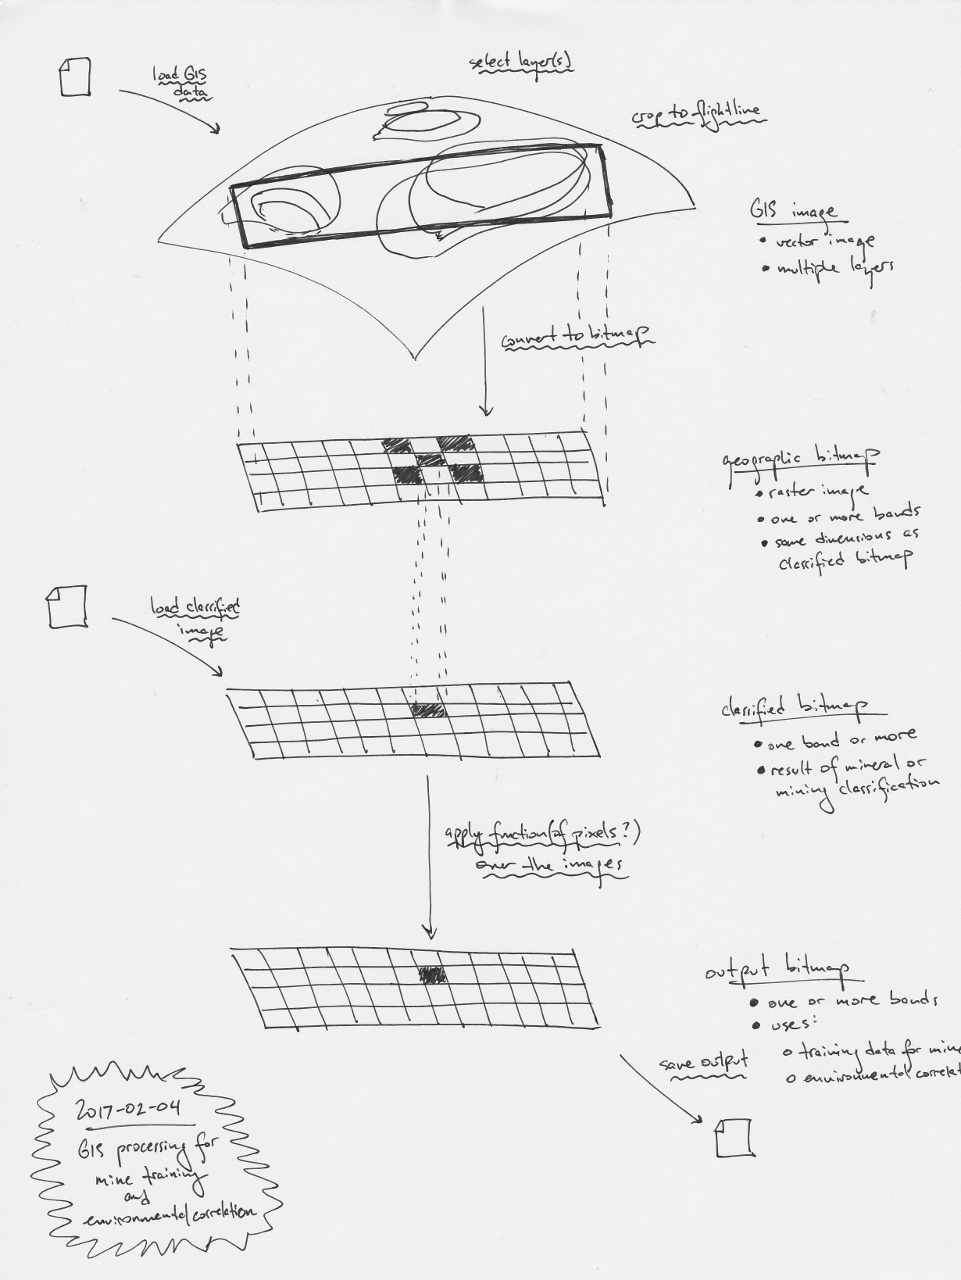 select layer(s)
load GIS
data
crop to flightline
GIS image
• vector image
• multiple layers
convert to bitmap
geographic bitmap
• raster image
• one or more bands
• same dimensions as
classified bitmap
load classified
image
classified bitmap
• one band or more
• result of mineral or
mining classification
apply function (of pixels?)
over the images
output bitmap
• one or more bands
• uses:
o training data for mine
o environmental correlat
save output
2017-02-04
GIS processing for
mine training
and
environmental correlation